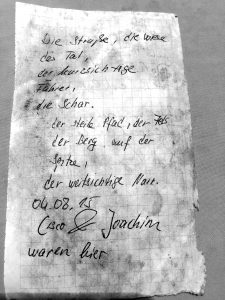 Die Straße, die
das Tal,
der kurzsichtige
Fahrer,
die Schar.
der steile Pfad, der Fels
der Berg auf der
Spitze,
der weitsichtige
04.08.15
& Joachim
waren hier